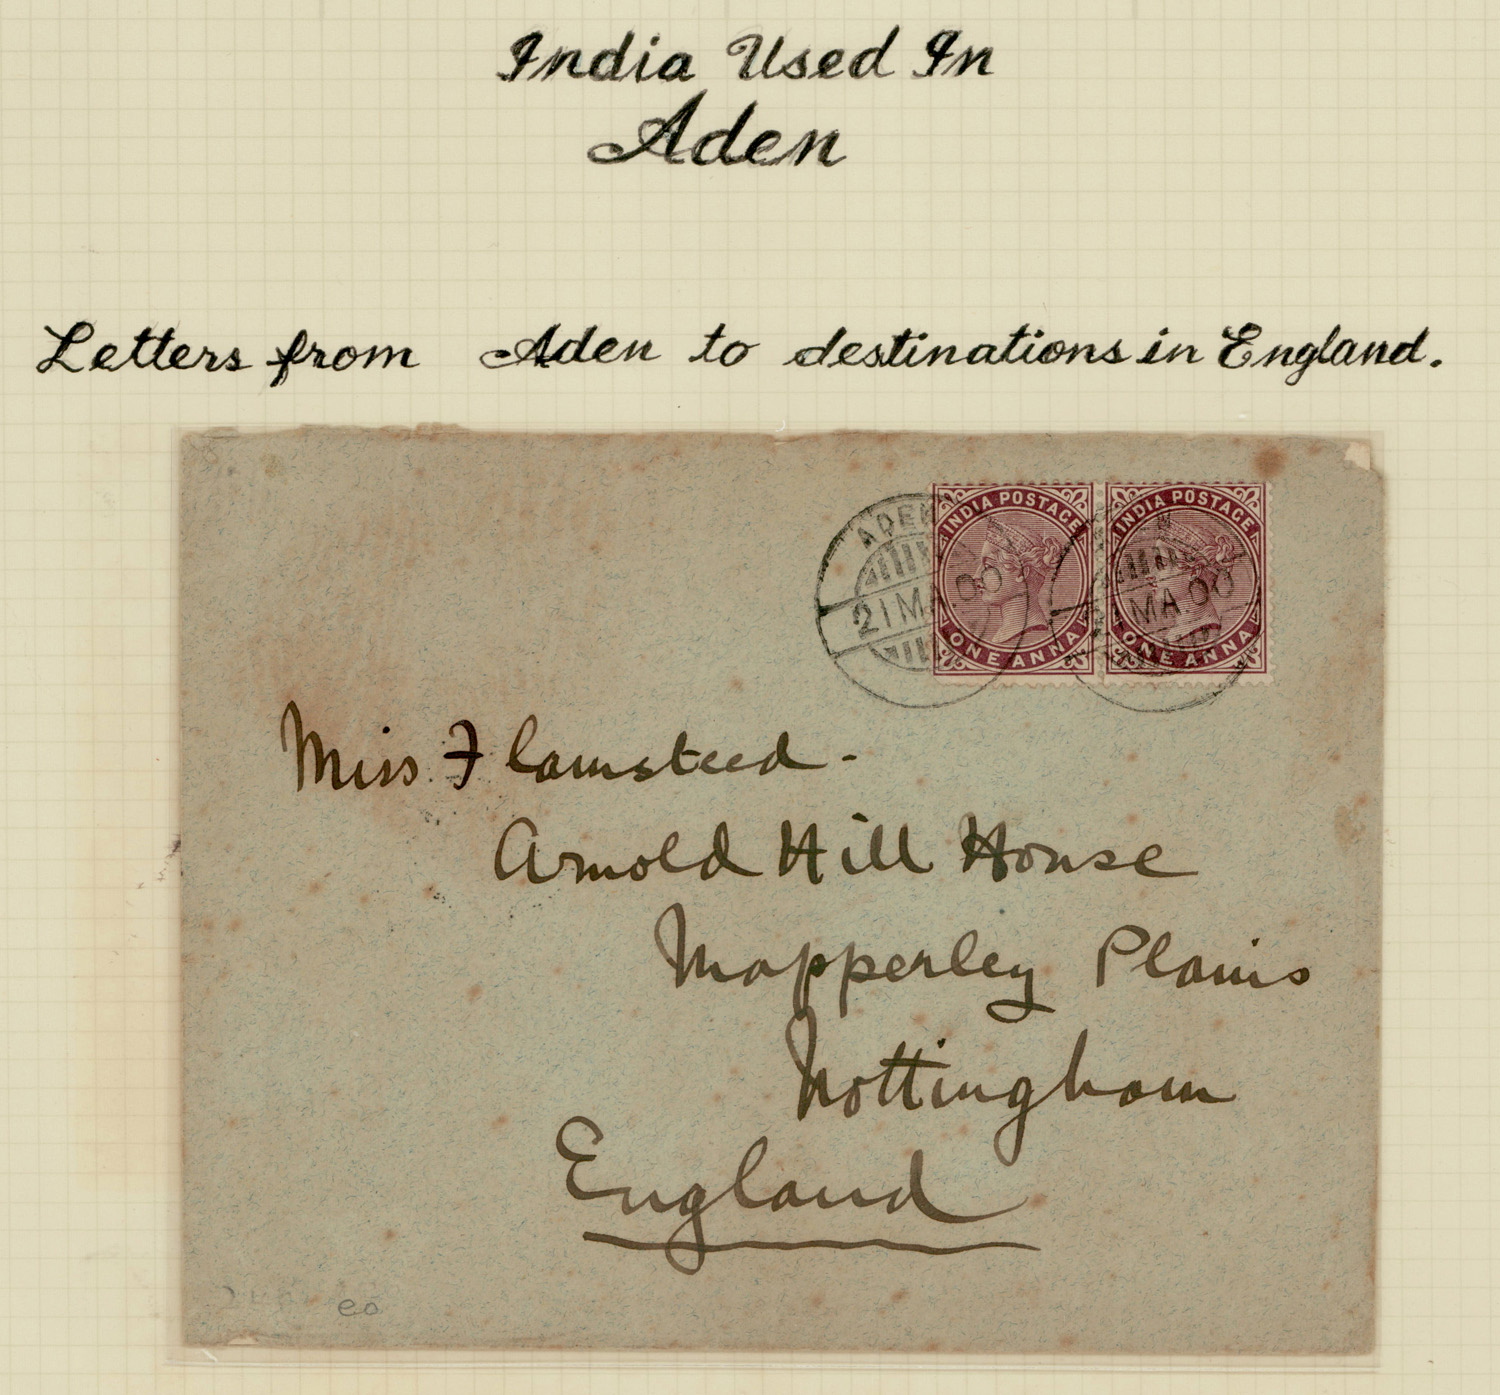 India Used In
Aden
Letters from Aden to destinations in England.
INDIA POSTAGE
ONE ANNA
INDIA POSTAGE
ONE ANNA
ADEN
21 MA 00
MA 00
Miss Flamsteed -
Arnold Hill House
Mapperley Plains
Nottingham
England